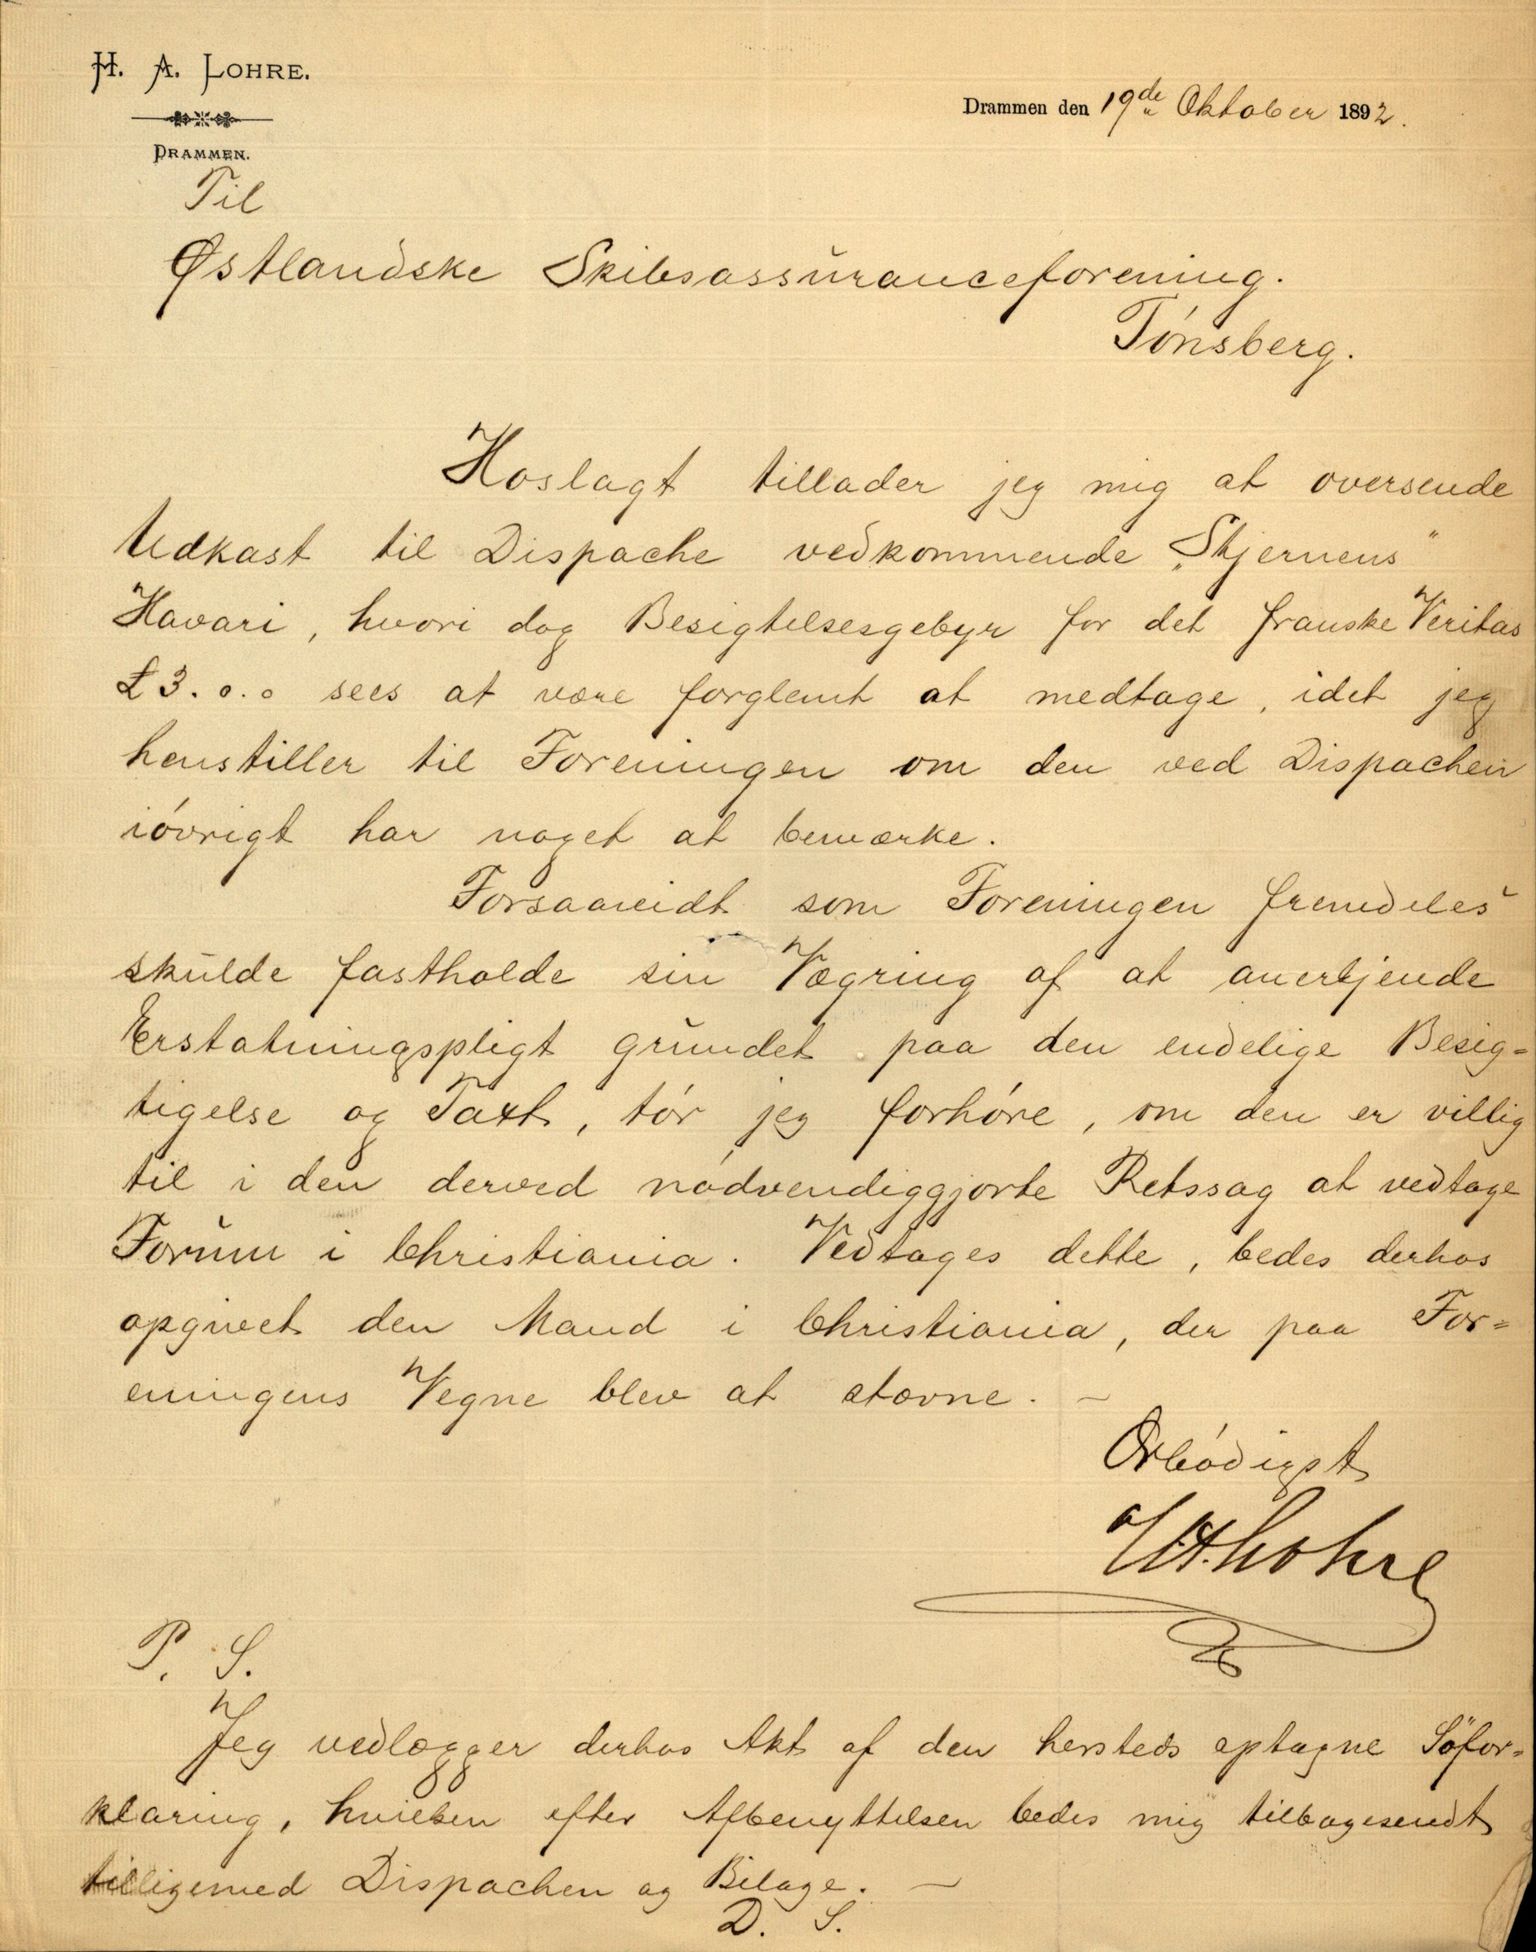 H. A. LOHRE.
DRAMMEN.
Drammen den 19de Oktober 1892.
Til
Østlandske Skibsassuranceforening.
Tónsberg.
Hoslagt tillader jeg mig at oversende
Udkast til Dispache vedkommende „Stjernens"
Havari, hvori dog Besigtelsesgebyr for det franske Veritas
£ 3. o. o sees at være forglemt at medtage, idet jeg
henstiller til Foreningen om den ved Dispachen
ióvrigt har noget at bemærke.
Forsaavidt som Foreningen fremdeles
skulde fastholde sin Vægring af at anerkjende
Erstatningspligt grundet paa den endelige Besig=
tigelse og Taxt, tór jeg forhóre, om den er villig
til i den derved nódvendiggjorte Retssag at vedtage
Forum i Christiania. Vedtages dette, bedes derhos
opgivet den Mand i Christiania, der paa For=
eningens Vegne blev at stævne. —
Ærbódigst
H A Lohre
P. S.
Jeg vedlægger derhos Akt af den hersteds optagne Söfor=
klaring, hvilken efter Afbenyttelsen bedes mig tilbagesendt
tilligemed Dispachen og Bilage. —
D. S.